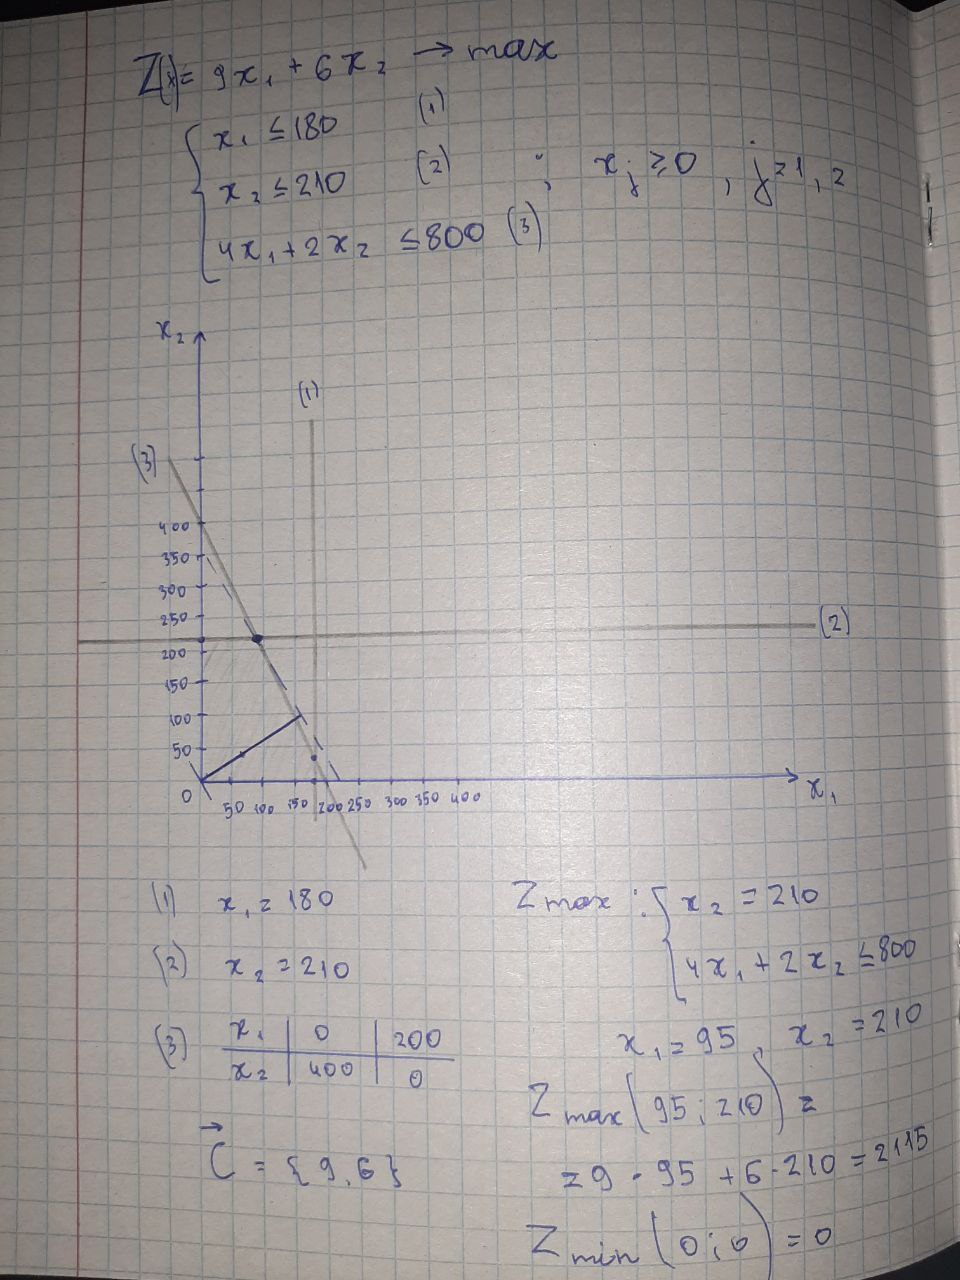 Z(x) = 9x₁ + 6x₂ → max
x₁ ≤ 180 (1)
x₂ ≤ 210 (2) ; xⱼ ≥ 0 , j = 1, 2
4x₁ + 2x₂ ≤ 800 (3)
x₂
(1)
(3)
400
350
300
250
(2)
200
150
100
50
0 50 100 150 200 250 300 350 400 x₁
(1) x₁ = 180
(2) x₂ = 210
(3) x₁ | 0 | 200
x₂ | 400 | 0
C⃗ = {9, 6}
Z max : { x₂ = 210
4x₁ + 2x₂ ≤ 800
x₁ = 95, x₂ = 210
Z max (95 ; 210) =
= 9 · 95 + 6 · 210 = 2115
Z min (0 ; 0) = 0